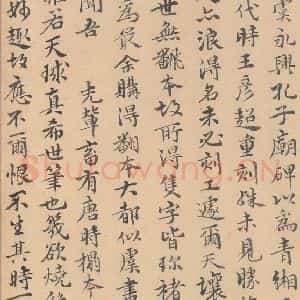 虞永興孔子廟碑以為青緗
代時王彥超重刻殊未見勝
浪得名未必刻工遽爾天讓
世無翻本故所得隻字皆珎褚
為從舍購得翻本大都似虞書
聞吾 先輩畜有唐時搨本
若天球真希世筆也幾欲燒
妙趣故應不爾恨不生其時一
Shufawang.CN